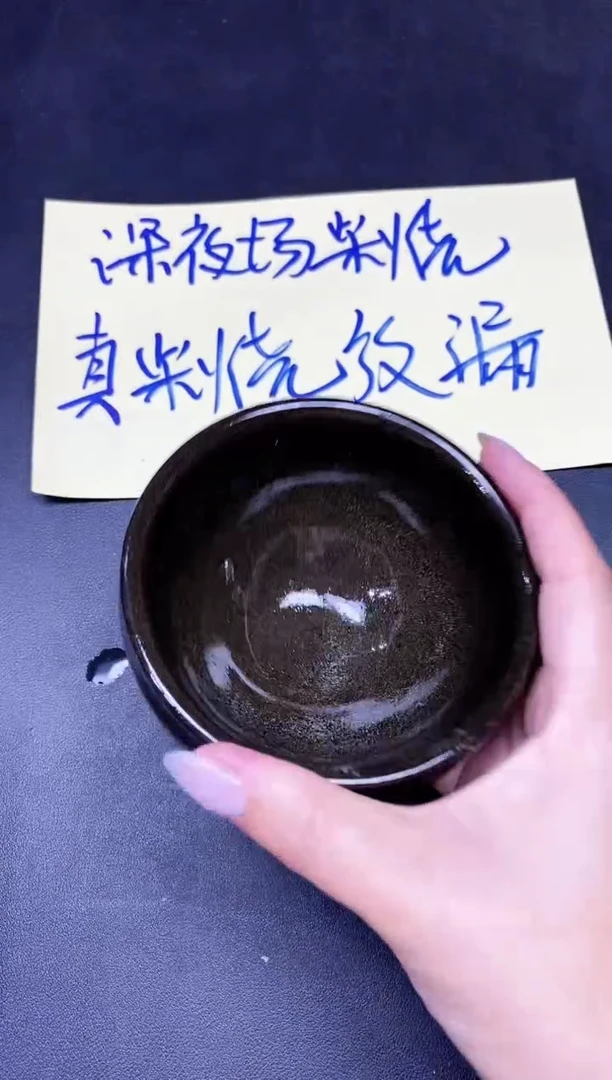 深夜场柴烧
真柴烧放漏